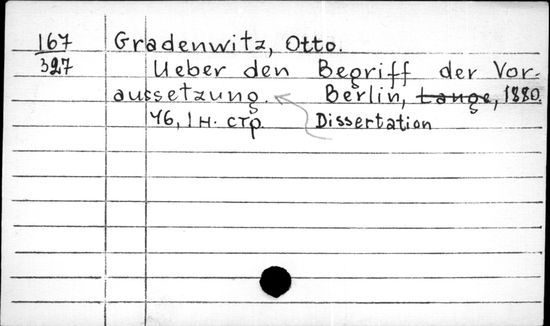 167 Gradenwitz, Otto.
327 Ueber den Begriff der Vor-
aussetzung. Berlin, Lange, 1880.
46, 1 н. стр. Dissertation